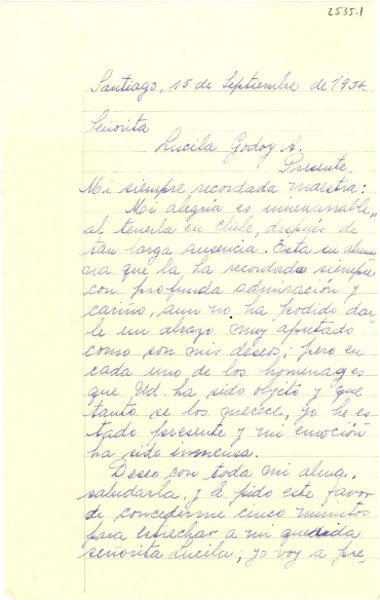 2535.1
Santiago, 15 de Septiembre de 1954.
Señorita
Lucila Godoy A.
Presente.
Mi siempre recordada maestra:
Mi alegría es inenarrable,
al tenerla en Chile, después de
tan larga ausencia. Esta su alum
na que la ha recordado siempre
con profunda admiración y
cariño, aun no ha podido dar
le un abrazo muy apretado
como son mis deseos; pero en
cada uno de los homenages
que Ud. ha sido objeto y que
tanto se los merece, yo he es
tado presente y mi emoción
ha sido inmensa.
Deseo con toda mi alma,
saludarla, y le pido este favor
de concederme cinco minutos
para estrechar a mi querida
señorita Lucila; yo voy a pre-